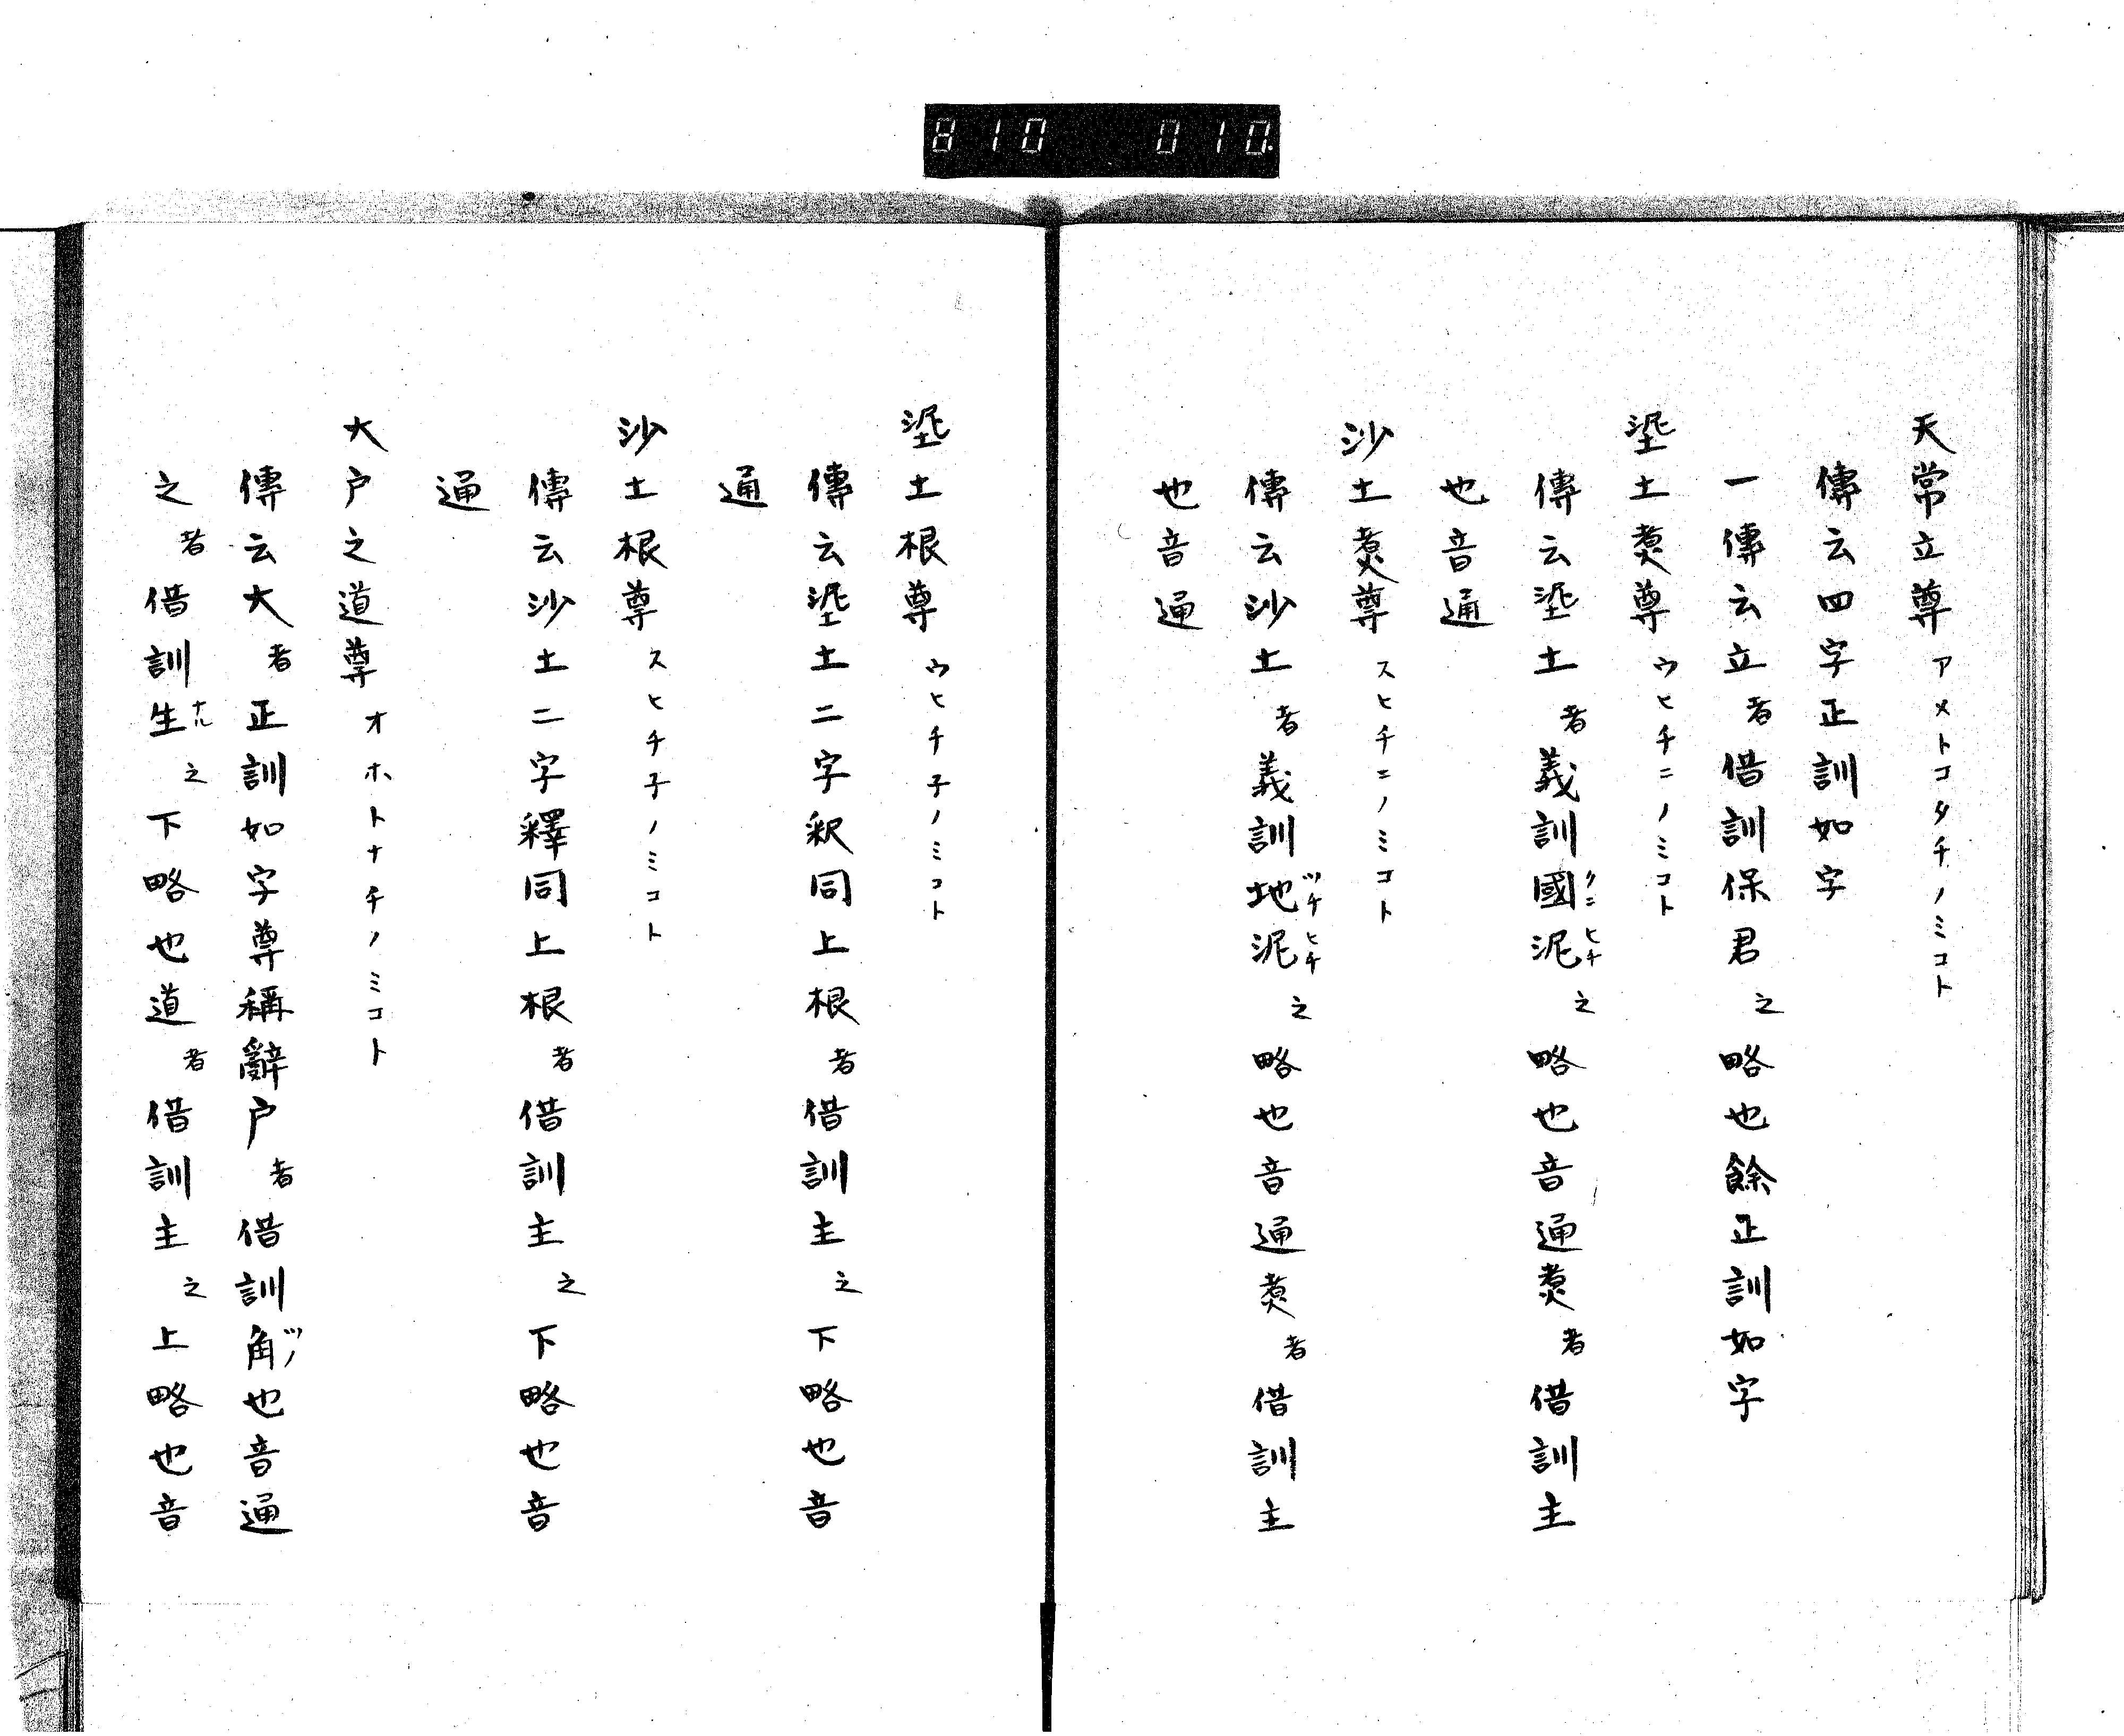 810 010.
天常立尊アメトコタチノミコト
傳云四字正訓如字
一傳云立者借訓保君之略也餘正訓如字
埿土煑尊ウヒチニノミコト
傳云埿土者義訓國クニ泥ヒチ之略也音通煑者借訓主
也音通
沙土煑尊スヒチニノミコト
傳云沙土者義訓地ツチ泥ヒチ之略也音通煑者借訓主
也音通
埿土根尊ウヒチ子ノミコト
傳云埿土二字釈同上根者借訓主之下略也音
通
沙土根尊スヒチ子ノミコト
傳云沙土二字釋同上根者借訓主之下略也音
通
大戸之道尊オホトナチノミコト
傳云大者正訓如字尊稱辭戸者借訓角ツノ也音通
之者借訓生ナル之下略也道者借訓主之上略也音